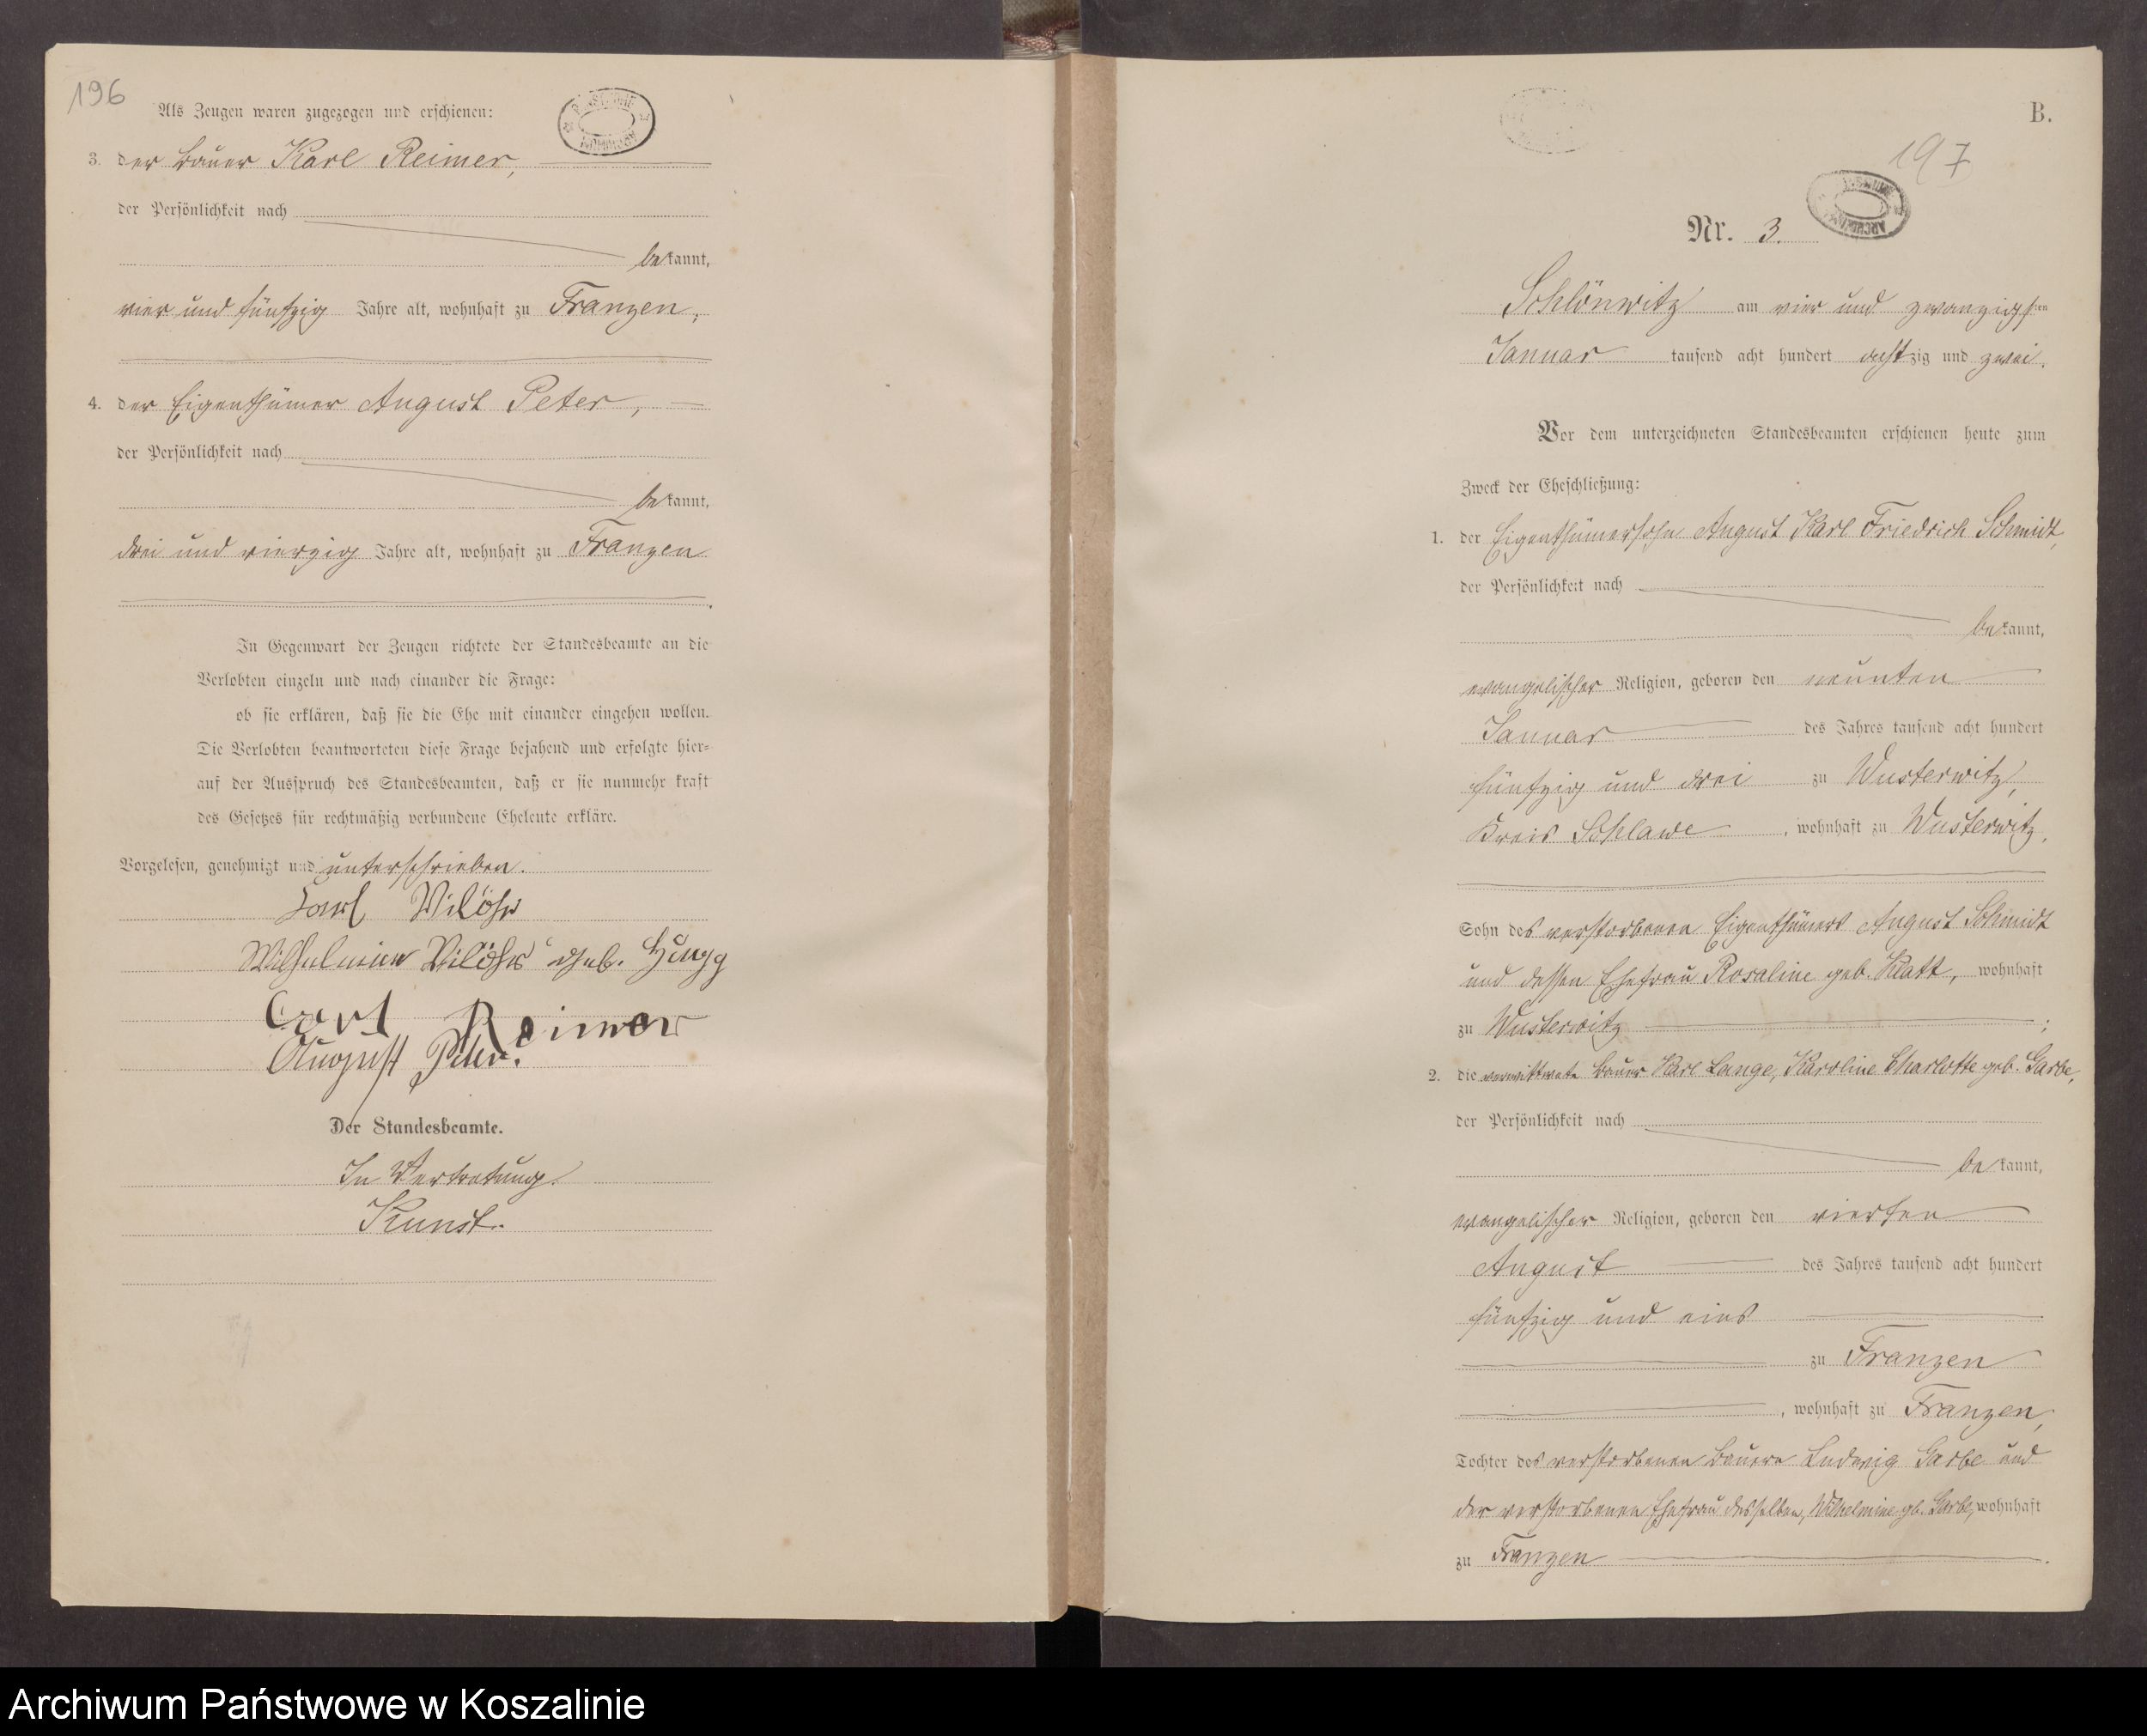 196
Als Zeugen waren zugezogen und erschienen:
3. der Bauer Karl Reimer,
der Persönlichkeit nach
bekannt,
vier und fünfzig Jahre alt, wohnhaft zu Franzen,
4. der Eigenthümer August Peter,
der Persönlichkeit nach
bekannt,
drei und vierzig Jahre alt, wohnhaft zu Franzen
In Gegenwart der Zeugen richtete der Standesbeamte an die
Verlobten einzeln und nach einander die Frage:
ob sie erklären, daß sie die Ehe mit einander eingehen wollen.
Die Verlobten beantworteten diese Frage bejahend und erfolgte hier-
auf der Ausspruch des Standesbeamten, daß er sie nunmehr kraft
des Gesetzes für rechtmäßig verbundene Eheleute erkläre.
Vorgelesen, genehmigt und unterschrieben.
Karl Vilöhr
Wilhelmine Vilöhr geb.
Carl Reimer
August Peter.
Der Standesbeamte.
In Vertretung.
Kunst.
B.
197
Nr. 3.
Schlönwitz am vier und zwanzigsten
Januar tausend acht hundert achtzig und zwei.
Vor dem unterzeichneten Standesbeamten erschienen heute zum
Zweck der Eheschließung:
1. der Eigenthümersohn August Karl Friedrich Schmidt,
der Persönlichkeit nach
bekannt,
evangelischer Religion, geboren den neunten
Januar des Jahres tausend acht hundert
fünfzig und drei zu Wusterwitz,
Kreis Schlawe, wohnhaft zu Wusterwitz,
Sohn des verstorbenen Eigenthümers August Schmidt
und dessen Ehefrau Rosaline geb. Klatt, wohnhaft
zu Wusterwitz ;
2. die verwittwete Bauer Karl Lange, Karoline Charlotte geb. Garbe,
der Persönlichkeit nach
bekannt,
evangelischer Religion, geboren den vierten
August des Jahres tausend acht hundert
fünfzig und eins
zu Franzen
, wohnhaft zu Franzen,
Tochter des verstorbenen Bauern Ludwig Garbe und
der verstorbenen Ehefrau desselben, Wilhelmine gb. Garbe, wohnhaft
zu Franzen .
Archiwum Państwowe w Koszalinie